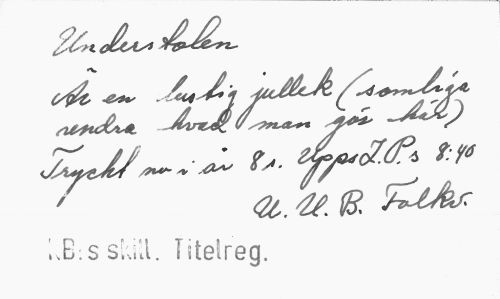 Understolen
Är en lustig jullek (somliga
rendra hvad man gör här)
Tryckt nu i år 8s. Upps J.P.s 8:40
U. U. B. Folkv.
K.B:s skill. Titelreg.